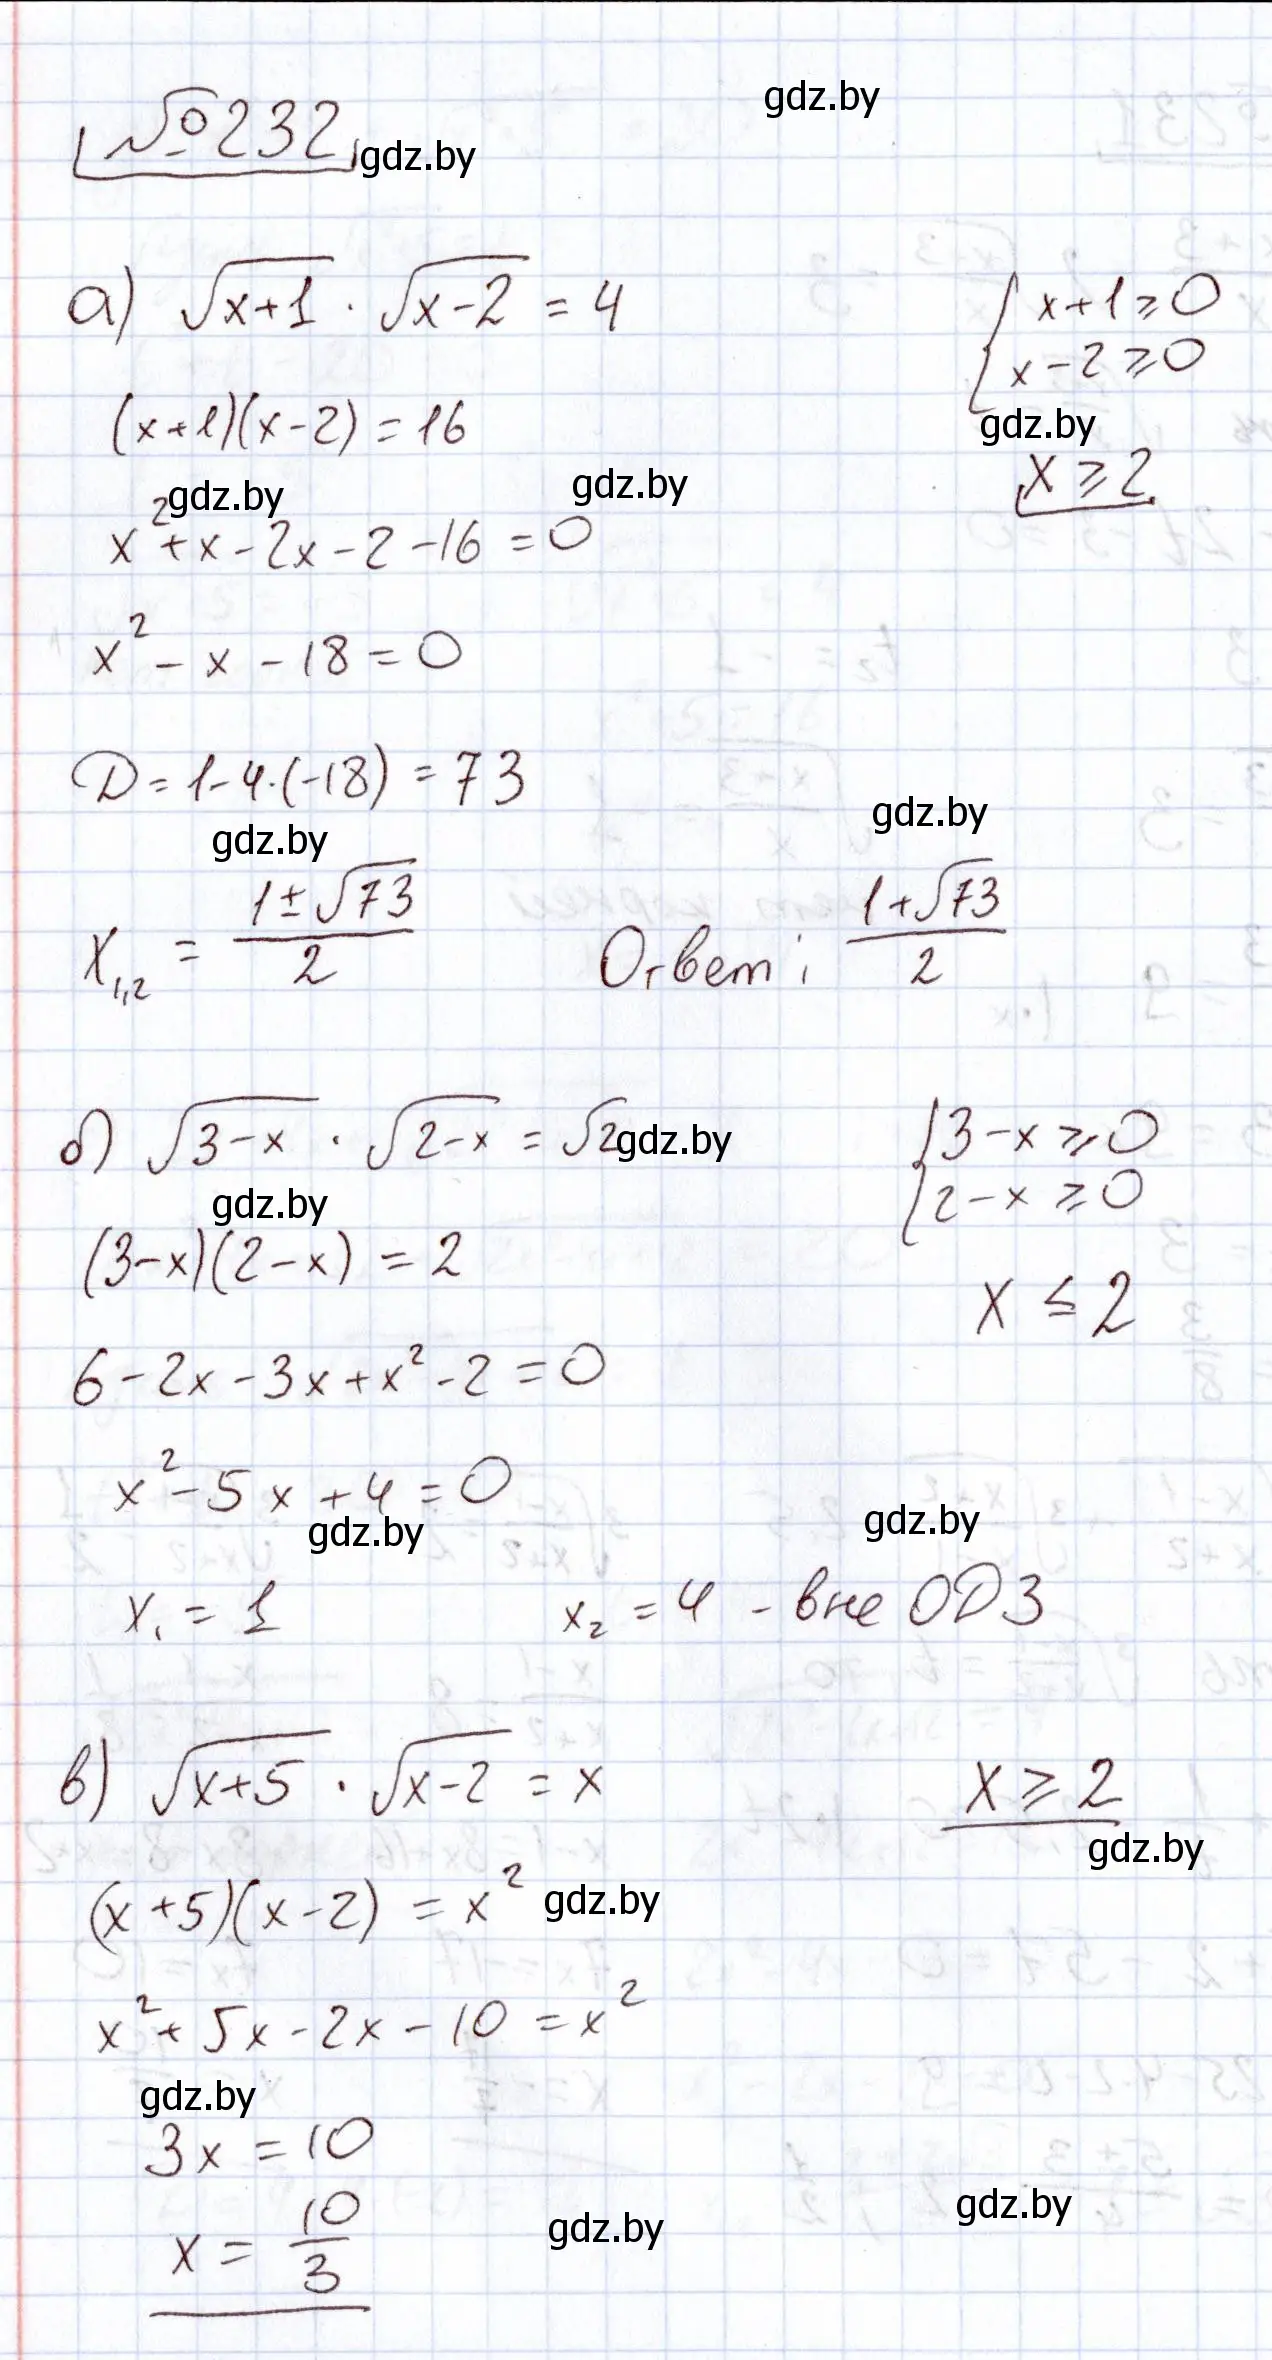 №232
gdz.by
gdz.by
а) √(x+1) · √(x-2) = 4
{ x+1 ≥ 0
x-2 ≥ 0
(x+1)(x-2) = 16
gdz.by
x ≥ 2
gdz.by
gdz.by
x² + x - 2x - 2 - 16 = 0
x² - x - 18 = 0
D = 1 - 4·(-18) = 73
gdz.by
gdz.by
x₁,₂ = (1 ± √73)/2
Ответ: (1 + √73)/2
б) √(3-x) · √(2-x) = √2
gdz.by
{ 3-x ≥ 0
2-x ≥ 0
gdz.by
(3-x)(2-x) = 2
x ≤ 2
6 - 2x - 3x + x² - 2 = 0
x² - 5x + 4 = 0
gdz.by
gdz.by
x₁ = 1
x₂ = 4 - вне ОДЗ
в) √(x+5) · √(x-2) = x
x ≥ 2
gdz.by
(x+5)(x-2) = x²
gdz.by
x² + 5x - 2x - 10 = x²
gdz.by
3x = 10
x = 10/3
gdz.by
gdz.by